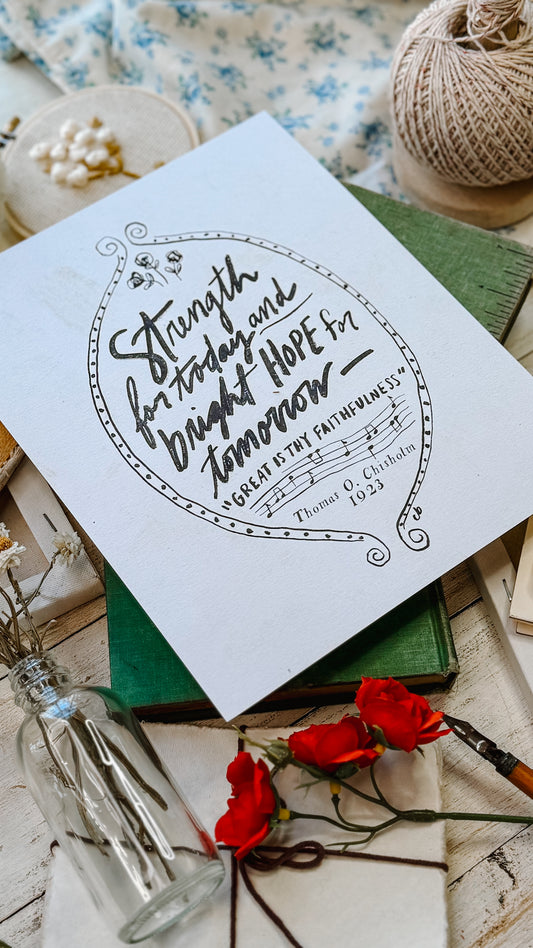 Strength
for today and
bright HOPE for
tomorrow —
"GREAT IS THY FAITHFULNESS"
Thomas O. Chisholm
1923
cb